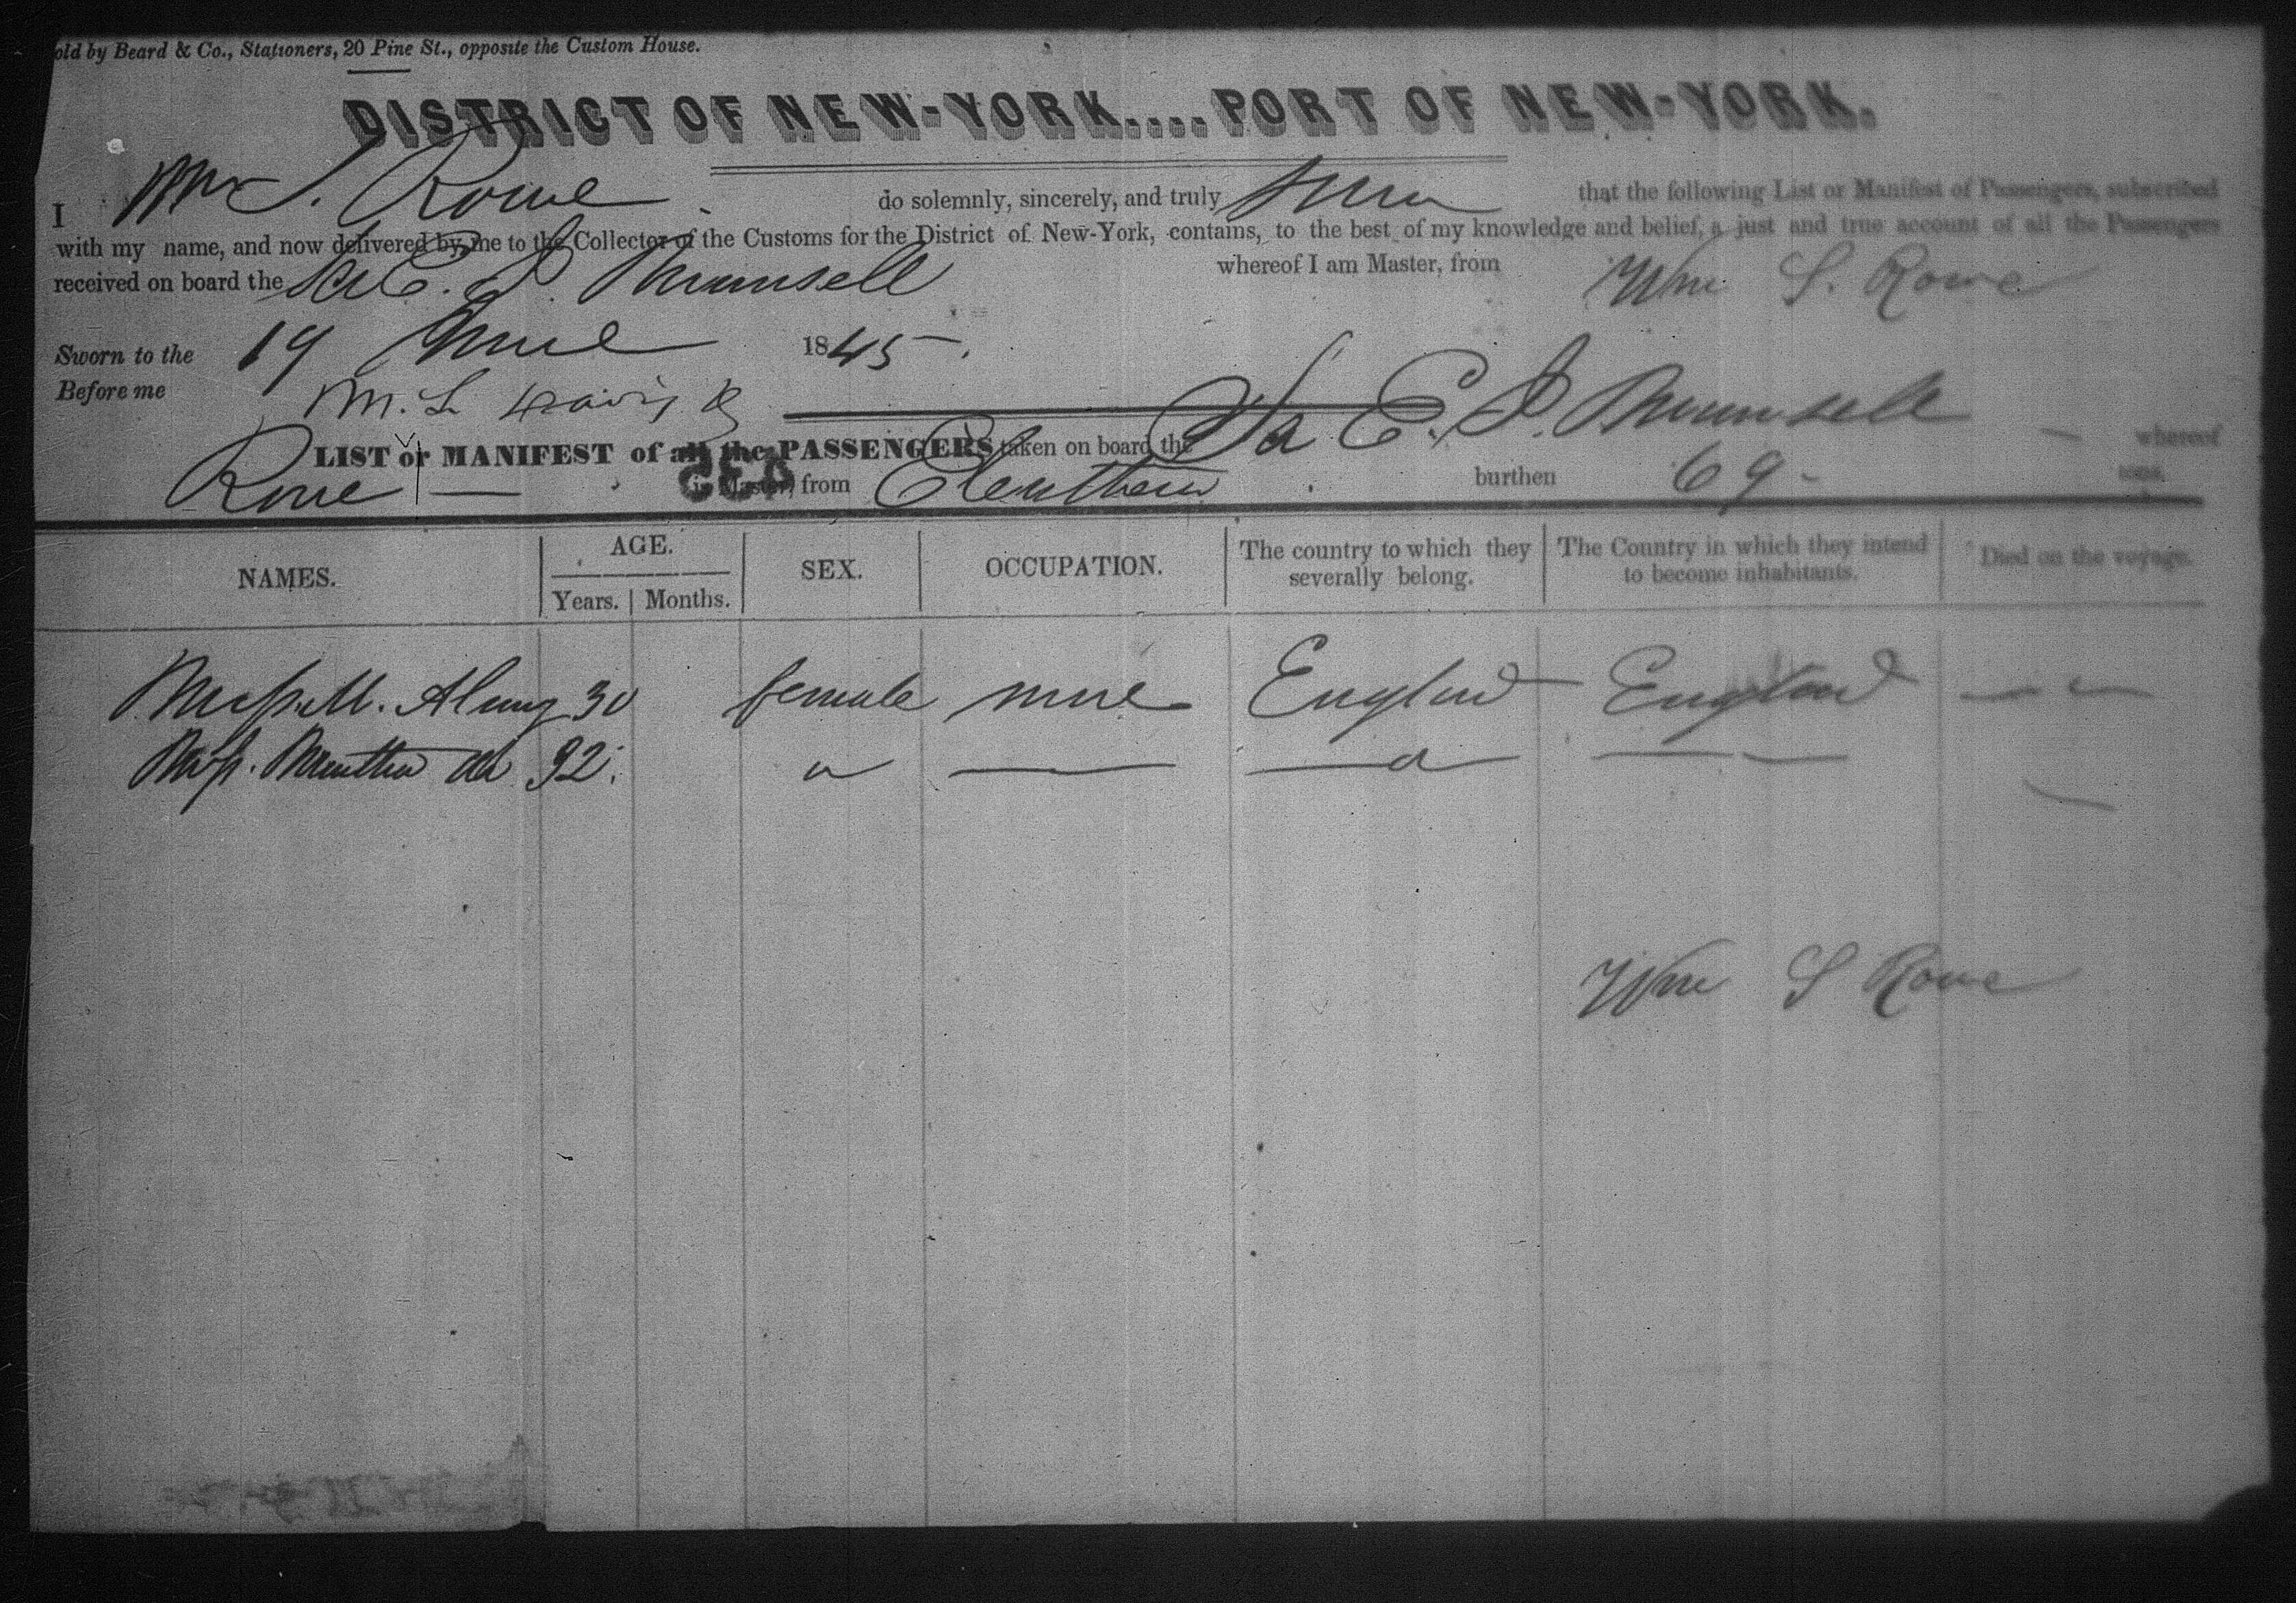 old by Beard & Co., Stationers, 20 Pine St., opposite the Custom House.
DISTRICT OF NEW-YORK....PORT OF NEW-YORK.
I Wm S. Rowe do solemnly, sincerely, and truly that the following List or Manifest of Passengers, subscribed
with my name, and now delivered by me to the Collector of the Customs for the District of New-York, contains, to the best of my knowledge and belief, a just and true account of all the Passengers
received on board the E. S. whereof I am Master, from
Wm S. Rowe
Sworn to the 19 June 1845.
Before me M. L
LIST or MANIFEST of all the PASSENGERS taken on board the E. S. whereof
Rowe is Master, from Eleuthera burthen 69 tons.
NAMES. AGE. Years. Months. SEX. OCCUPATION. The country to which they severally belong. The Country in which they intend to become inhabitants. Died on the voyage.
Miss M. 30 female none England England
Miss
Wm S Rowe